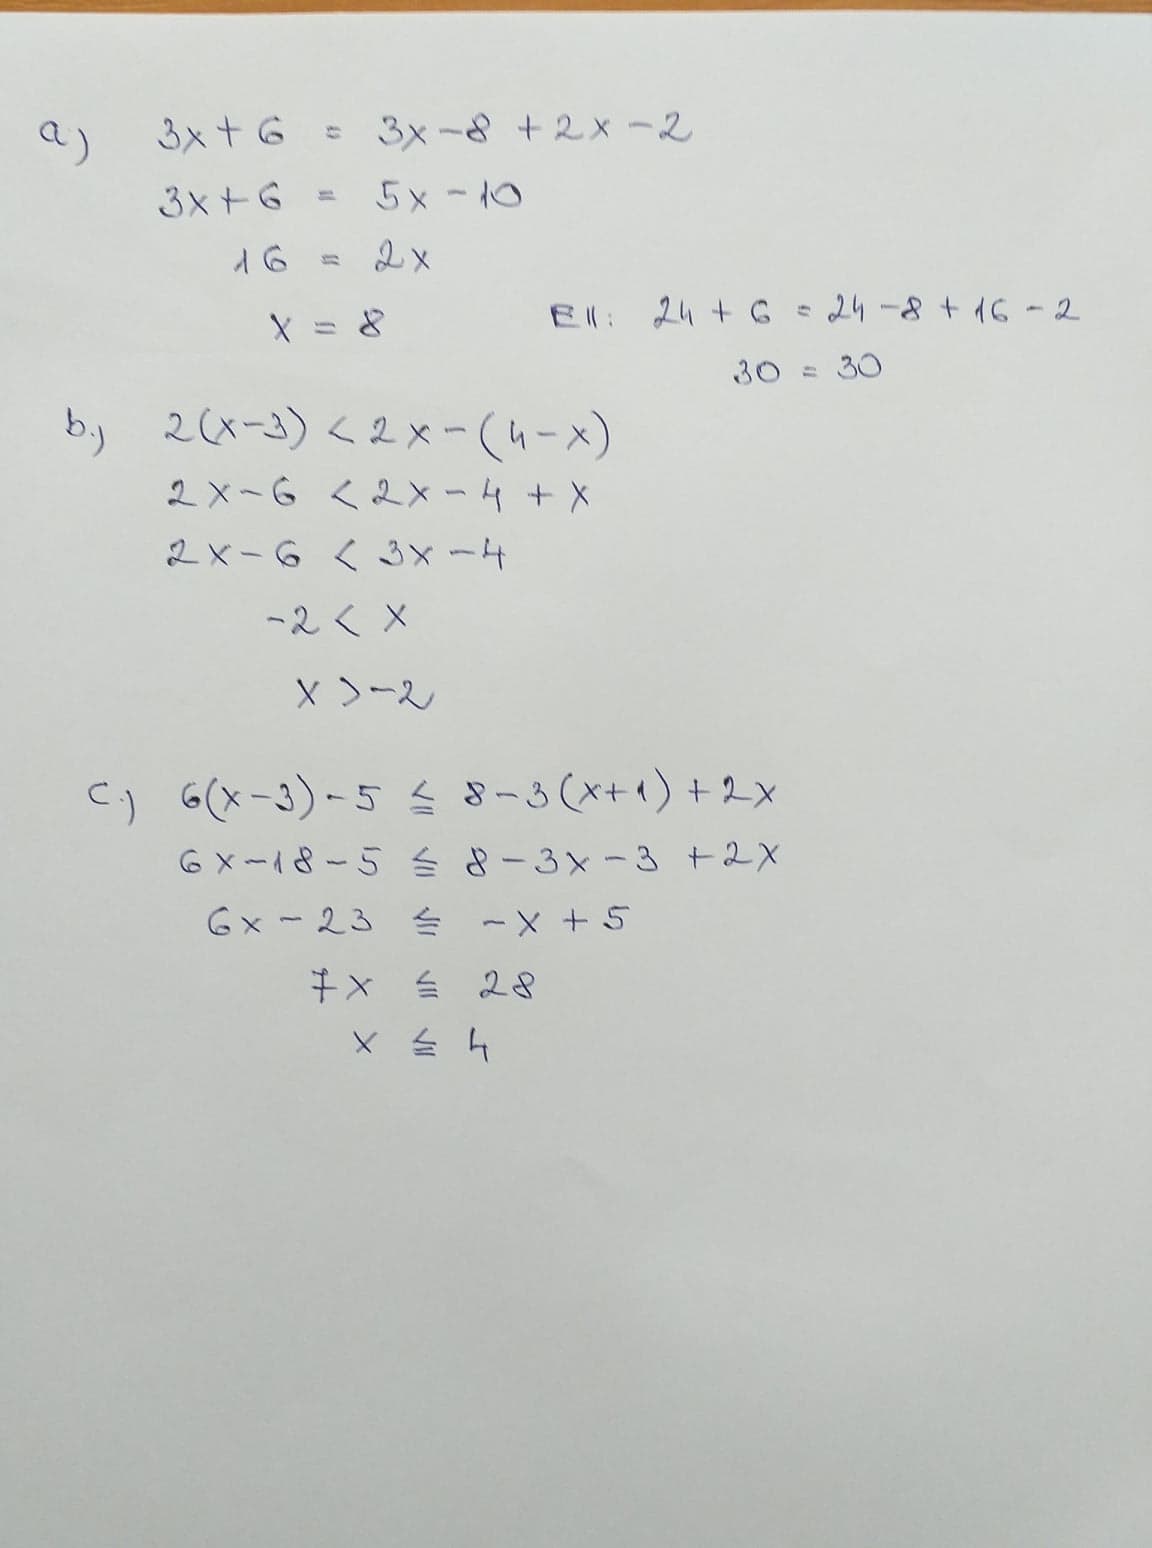 a) 3x+6 = 3x-8+2x-2
3x+6 = 5x-10
16 = 2x
x = 8
Ell: 24+6 = 24-8+16-2
30 = 30
b.) 2(x-3) < 2x-(4-x)
2x-6 < 2x-4+x
2x-6 < 3x-4
-2 < x
x > -2
c.) 6(x-3)-5 ≦ 8-3(x+1)+2x
6x-18-5 ≦ 8-3x-3+2x
6x-23 ≦ -x+5
7x ≦ 28
x ≦ 4